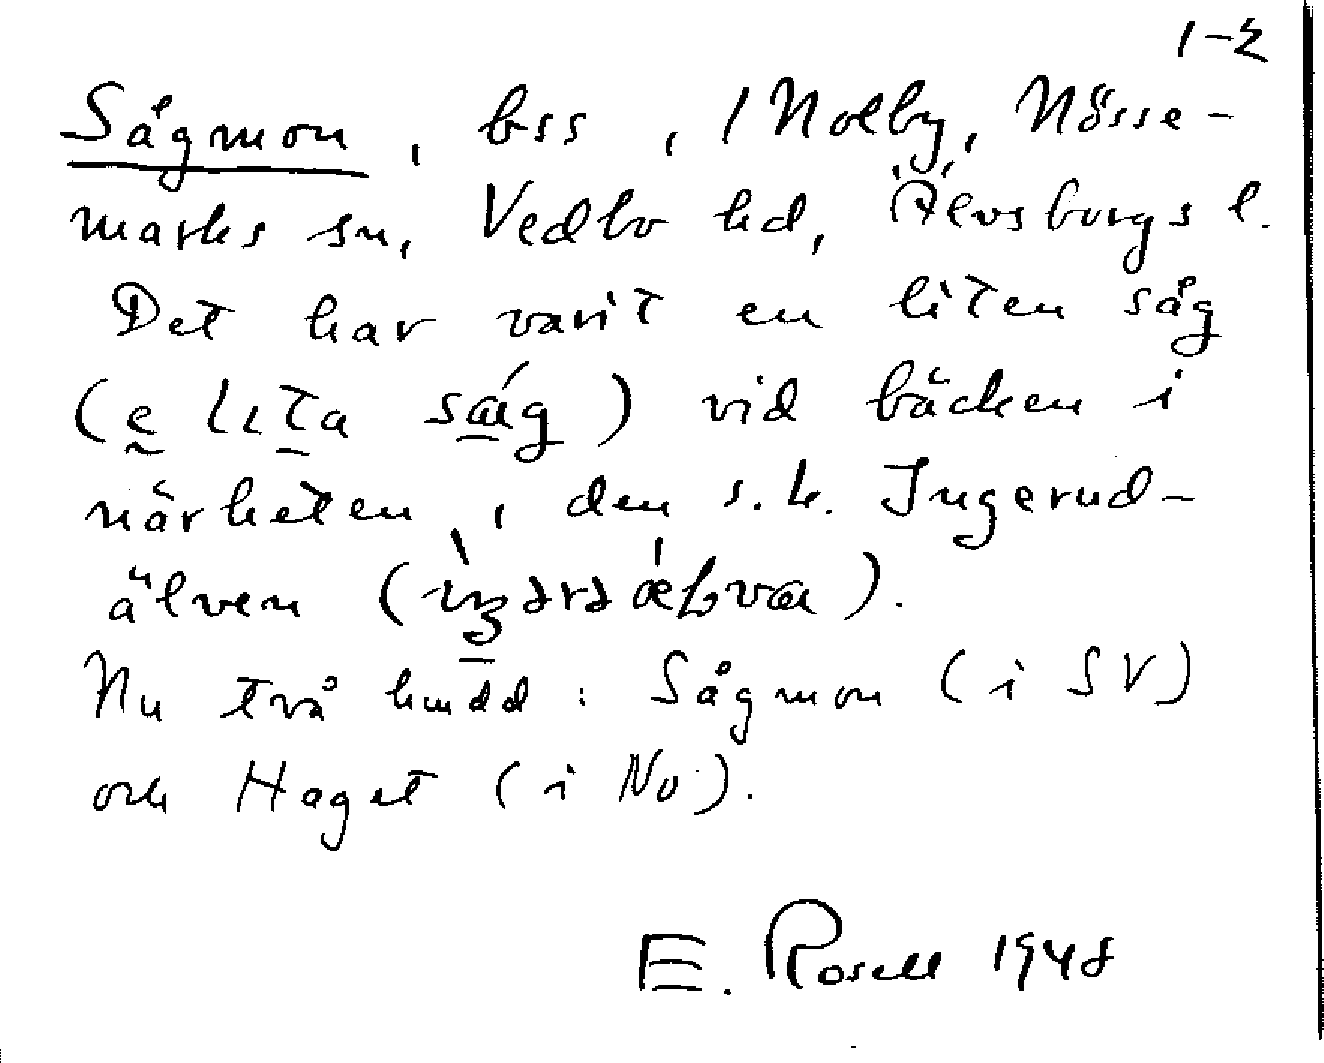 1-2
Sågmon, bss, 1 Nolby, Nösse-
marks sn, Vedbo hd, Älvsborgs l.
Det har varit en liten såg
(e lita såg) vid bäcken i
närheten, den s.k. Ingerud-
älven
Nu två hmdd: Sågmon (i SV)
och Haget (i NO).
E. Rosell 1948